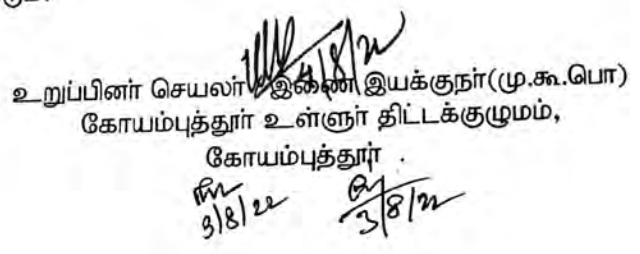 4/8/22
உறுப்பினர் செயலர் / இணை இயக்குநர்(மு.கூ.பொ)
கோயம்புத்தூர் உள்ளுர் திட்டக்குழுமம்,
கோயம்புத்தூர் .
3/8/22 3/8/22